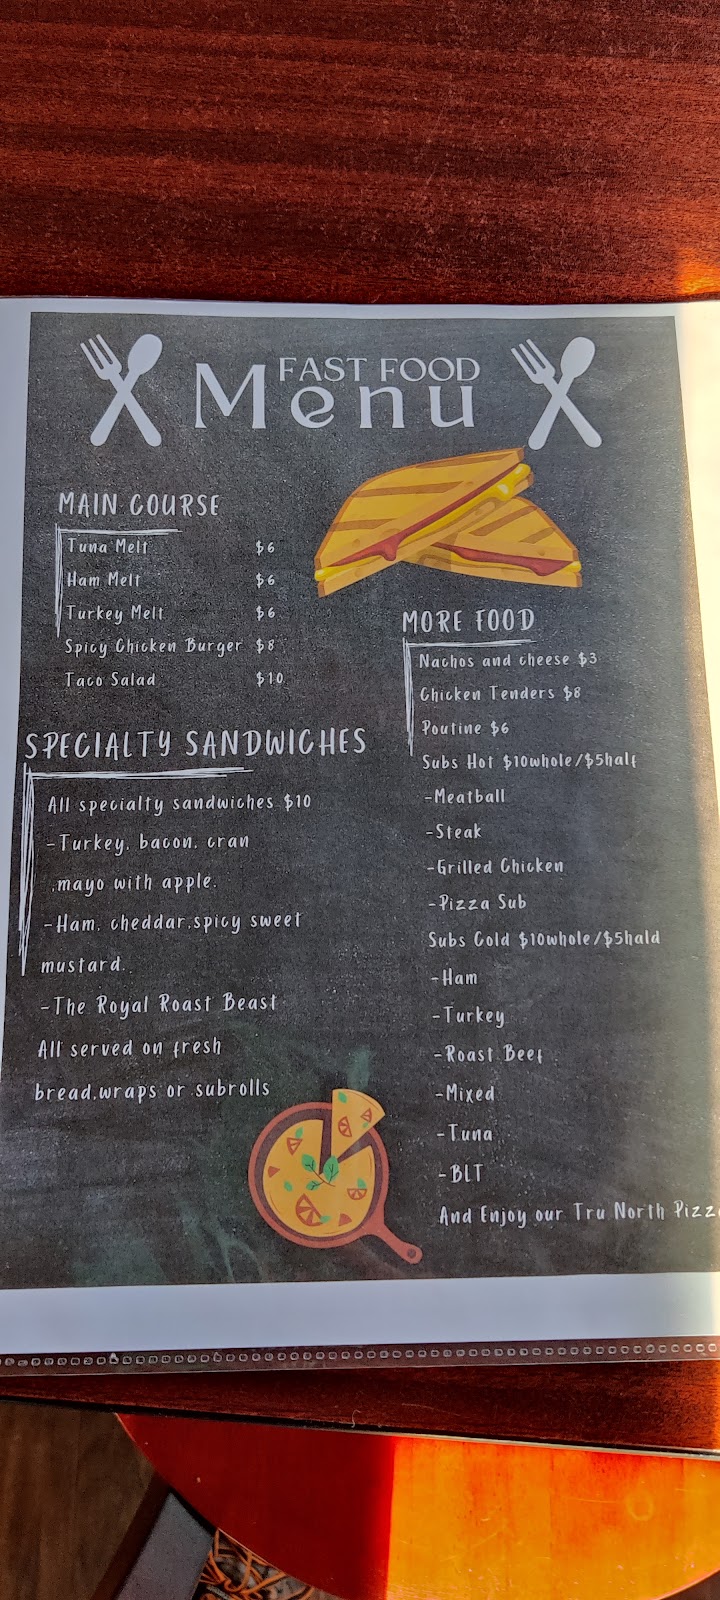 FAST FOOD
Menu
MAIN COURSE
Tuna Melt $6
Ham Melt $6
Turkey Melt $6
Spicy Chicken Burger $8
Taco Salad $10
SPECIALTY SANDWICHES
All specialty sandwiches $10
-Turkey, bacon, cran
,mayo with apple.
-Ham, cheddar,spicy sweet
mustard.
-The Royal Roast Beast
All served on fresh
bread,wraps or subrolls
MORE FOOD
Nachos and cheese $3
Chicken Tenders $8
Poutine $6
Subs Hot $10whole/$5half
-Meatball
-Steak
-Grilled Chicken
-Pizza Sub
Subs Cold $10whole/$5hald
-Ham
-Turkey
-Roast Beef
-Mixed
-Tuna
-BLT
And Enjoy our Tru North Pizza